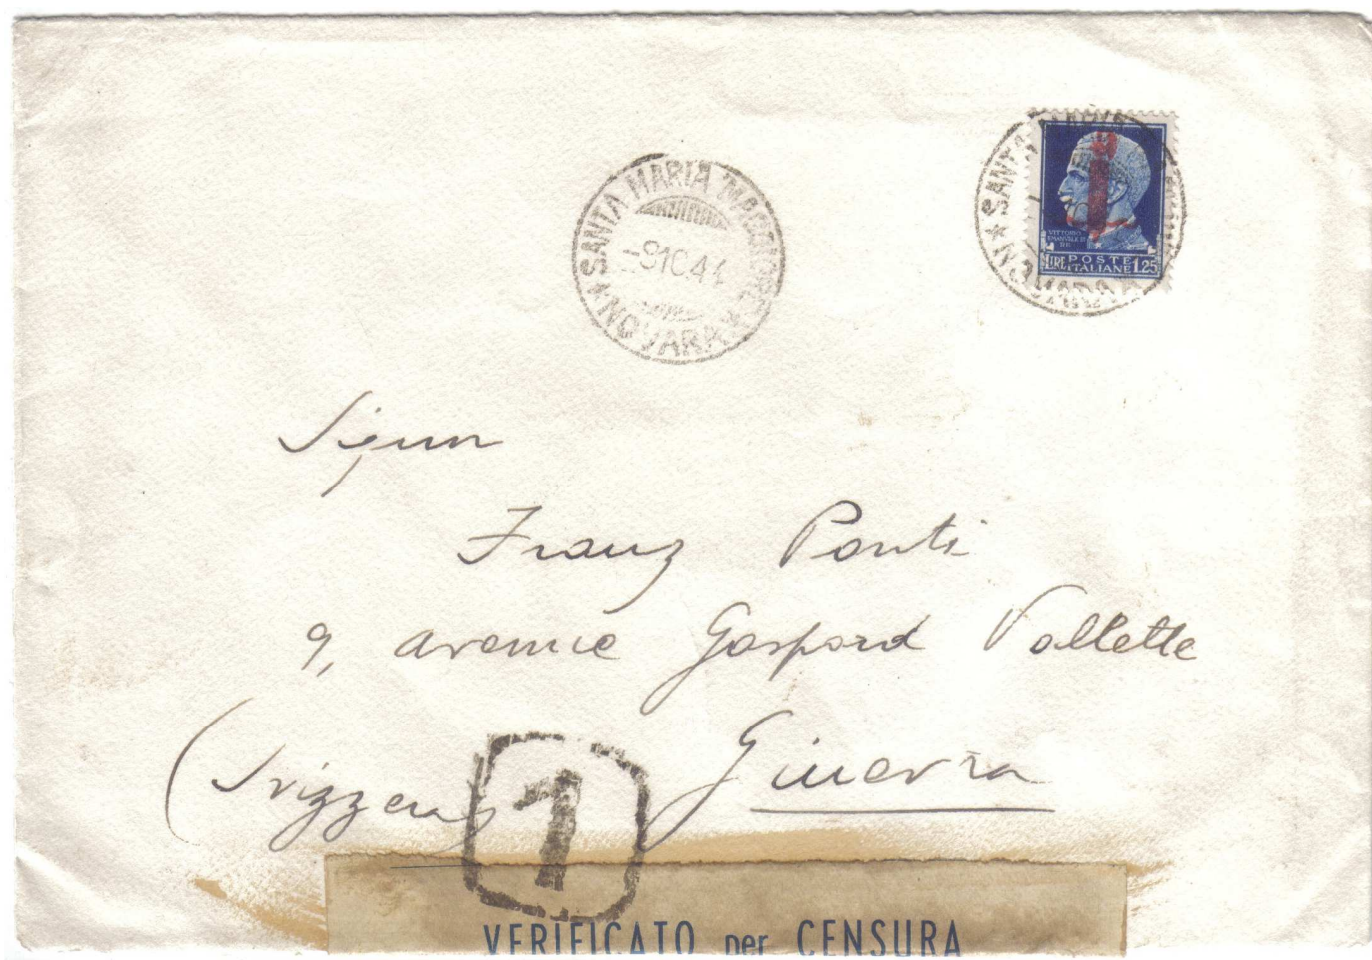 SANTA MARIA MAGGIORE
-9 10.44
* NOVARA *
SANTA MARIA
* NOVARA
VITTORIO
EMANVELE III
RE
LIRE POSTE ITALIANE 1.25
Signor
Franz Ponti
9, avenue Gaspard Vallette
Ginevra
(Svizzera)
1
VERIFICATO per CENSURA